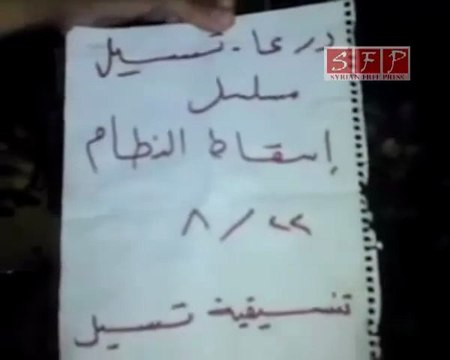 درعا - تسيل
S F P
SYRIAN FREE PRESS
مسلسل
إسقاط النظام
٨/٢٢
تنسيقية تسيل